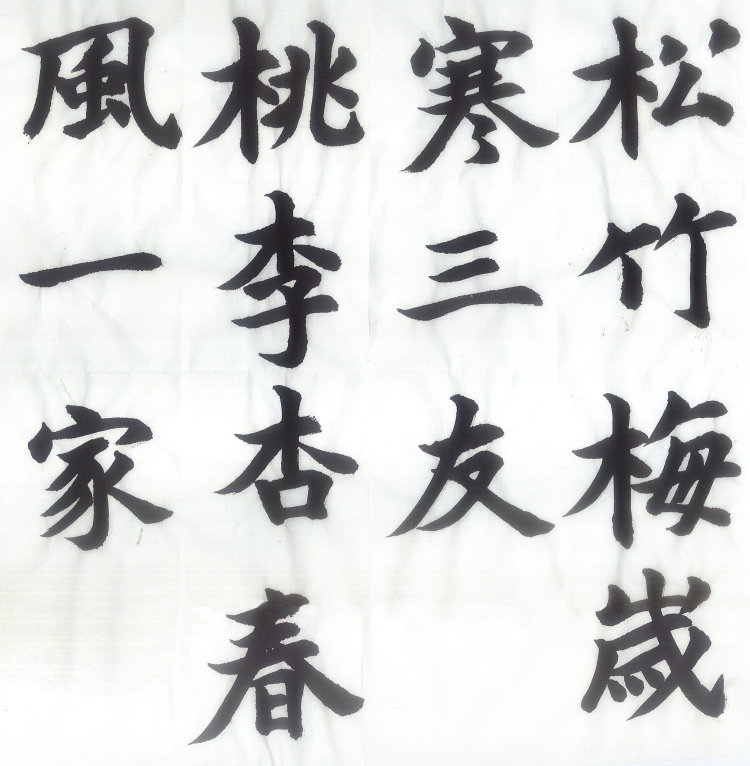 松竹梅歲
寒三友
桃李杏春
風一家